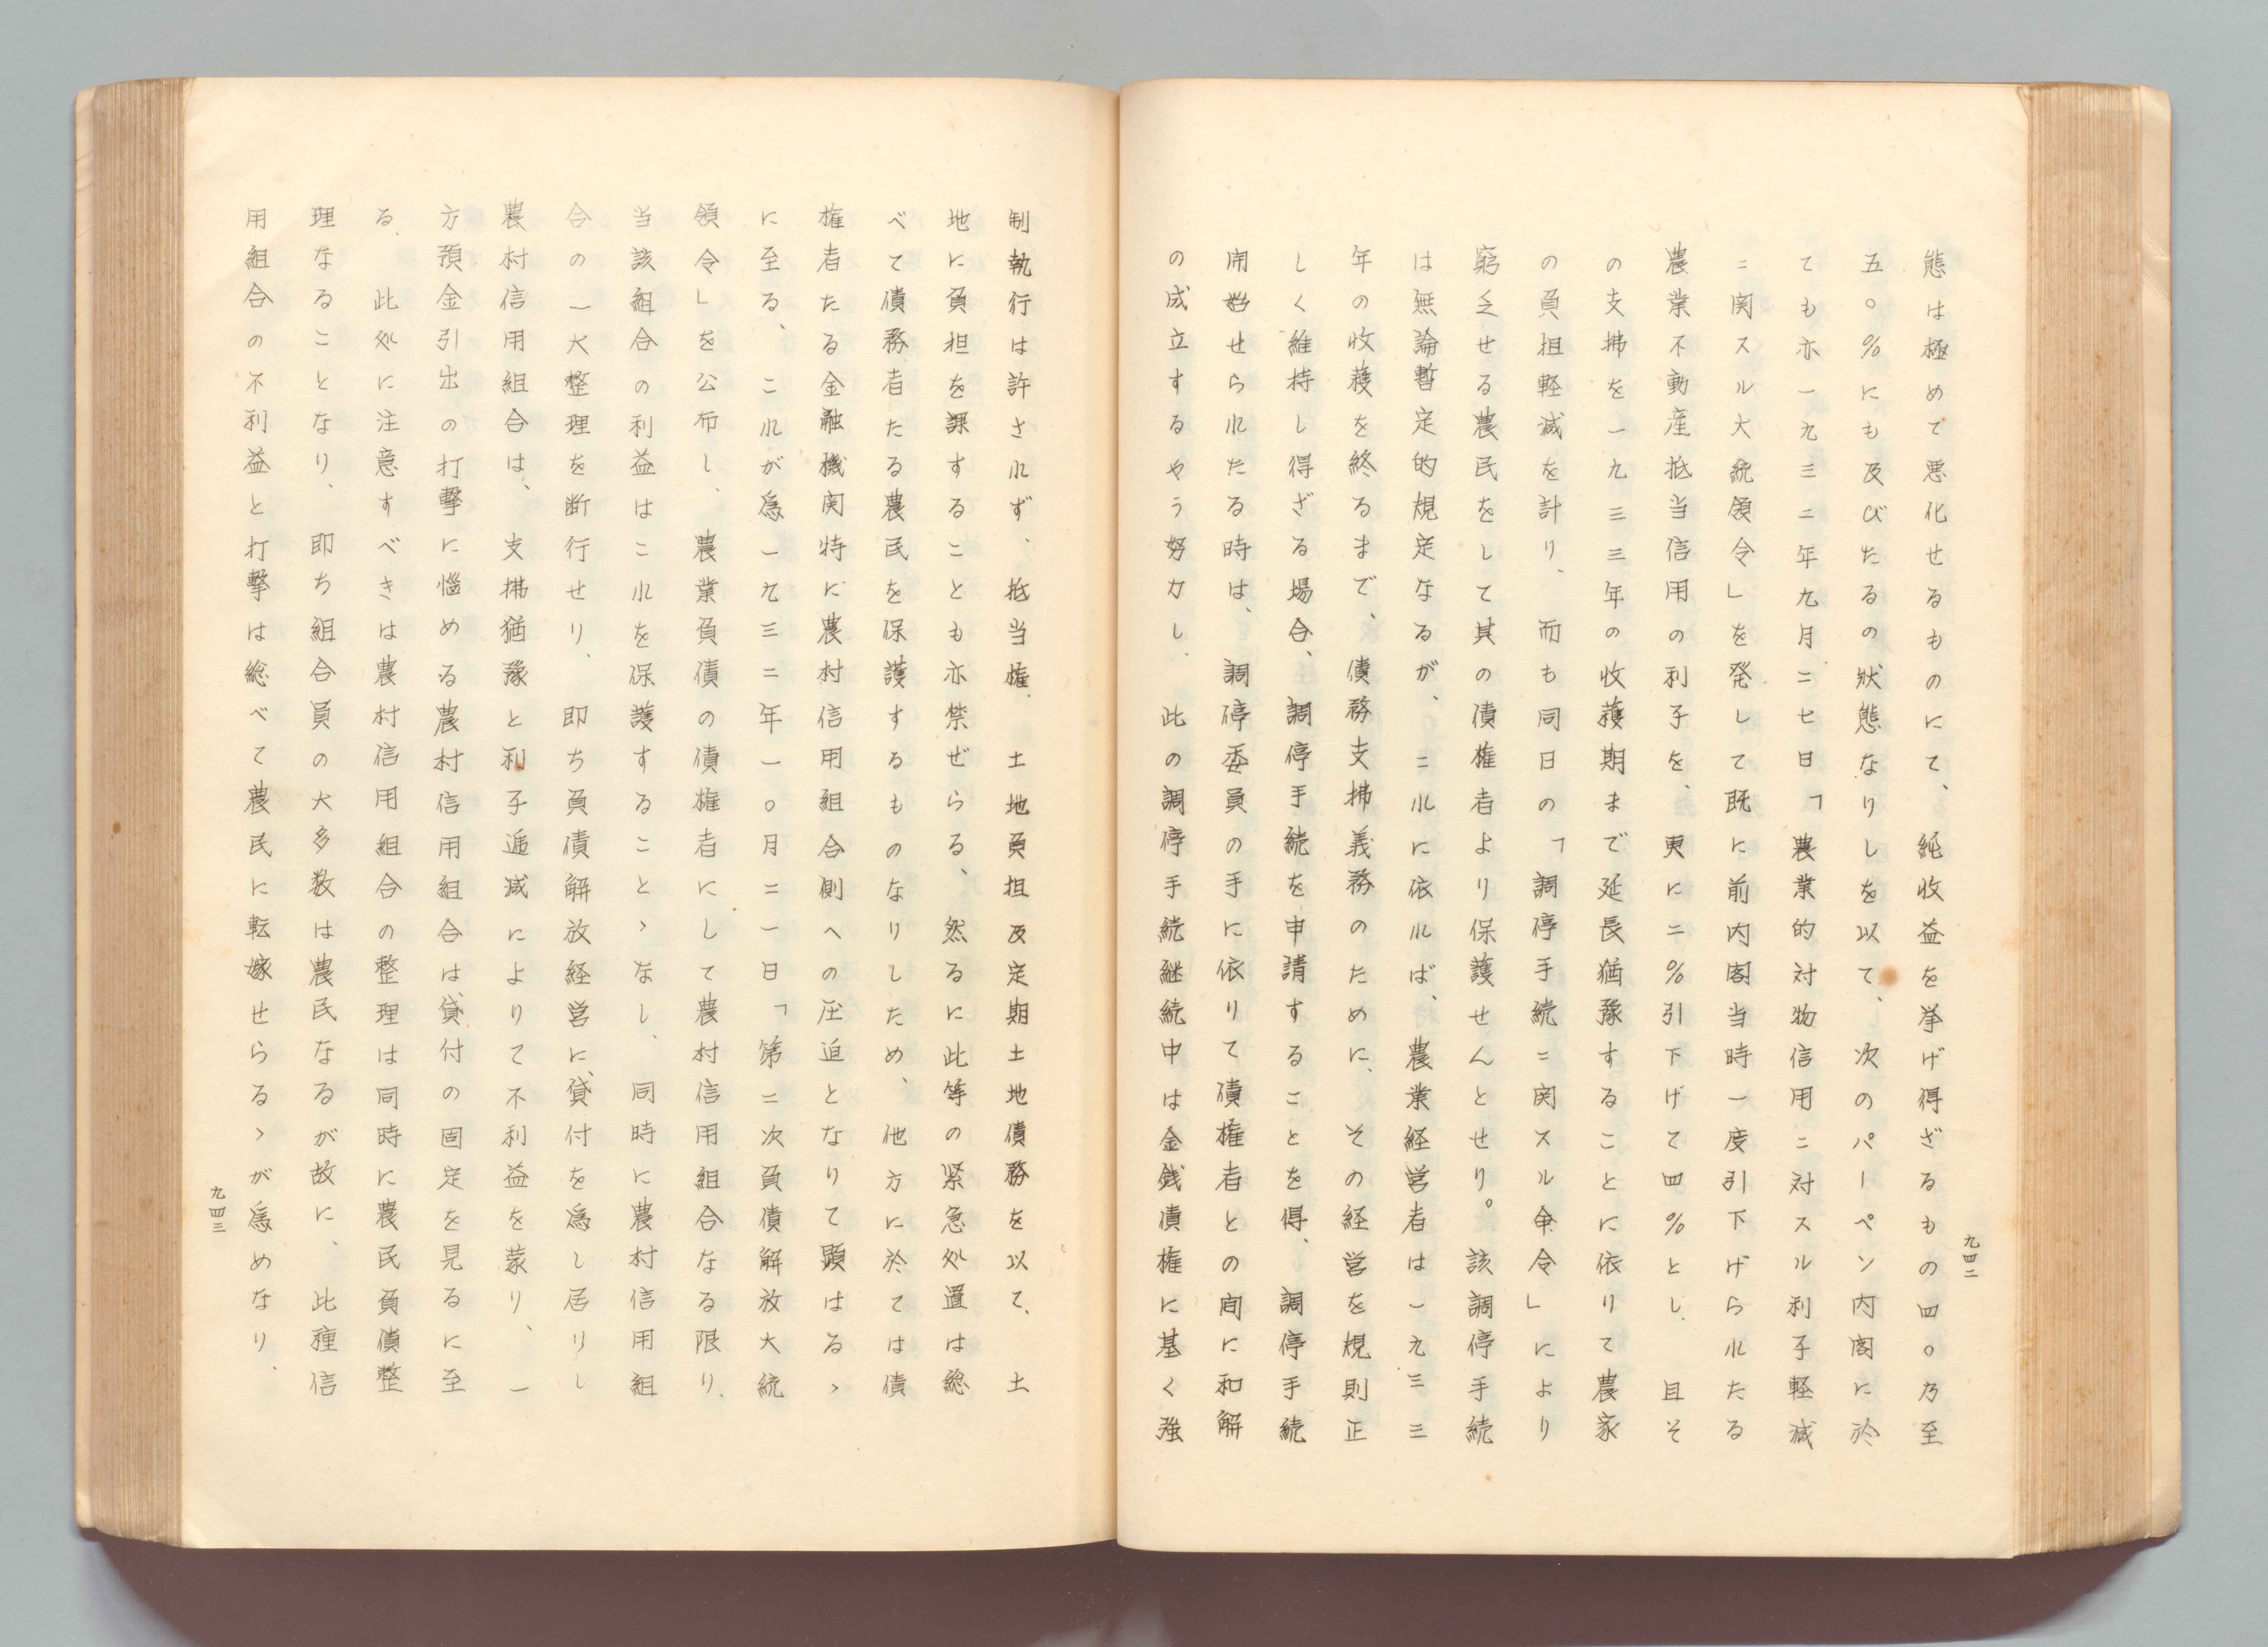 態は極めて悪化せるものにて、純收益を挙げ得ざるもの四〇乃至
五〇%にも及びたるの狀態なりしを以て、次のパーペン内閣に於
ても亦一九三二年九月二七日「農業的対物信用ニ対スル利子軽減
ニ関スル大統領令」を発して既に前内閣当時一度引下げられたる
農業不動産抵当信用の利子を、更に二%引下げて四%とし、且そ
の支拂を一九三三年の收穫期まで延長猶豫することに依りて農家
の負担軽減を計り、而も同日の「調停手続ニ関スル命令」により
窮乏せる農民をして其の債権者より保護せんとせり。該調停手続
は無論暫定的規定なるが、これに依れば、農業経営者は一九三三
年の收穫を終るまで、債務支拂義務のために、その経営を規則正
しく維持し得ざる場合、調停手続を申請することを得、調停手続
開始せられたる時は、調停委員の手に依りて債権者との間に和解
の成立するやう努力し、此の調停手続継続中は金銭債権に基く強
九四二
制執行は許されず、抵当権、土地負担及定期土地債務を以て、土
地に負担を課することも亦禁ぜらる、然るに此等の緊急処置は総
べて債務者たる農民を保護するものなりしため、他方に於ては債
権者たる金融機関特に農村信用組合側への圧迫となりて顕はるゝ
に至る、これが為一九三二年一〇月二一日「第二次負債解放大統
領令」を公布し、農業負債の債権者にして農村信用組合なる限り、
当該組合の利益はこれを保護することゝなし、同時に農村信用組
合の一大整理を断行せり、即ち負債解放経営に、貸付を為し居りし
農村信用組合は、支拂猶豫と利子逓減によりて不利益を蒙り、一
方預金引出の打撃に惱める農村信用組合は貸付の固定を見るに至
る、此処に注意すべきは農村信用組合の整理は同時に農民負債整
理なることなり、即ち組合員の大多数は農民なるが故に、此種信
用組合の不利益と打撃は総べて農民に転嫁せらるゝが為めなり、
九四三